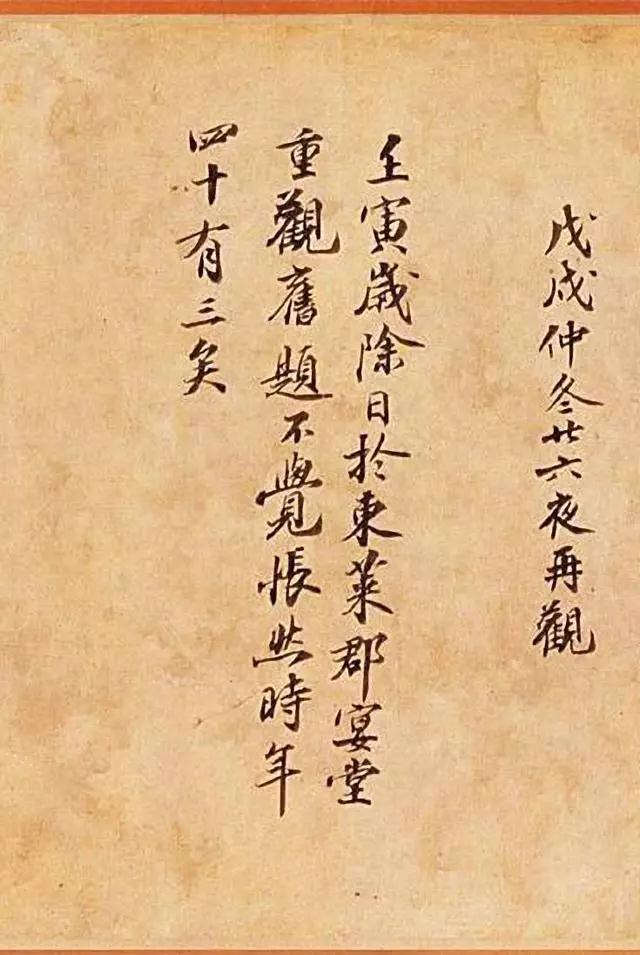 戊戌仲冬廿六夜再觀
壬寅歲除日於東萊郡宴堂
重觀舊題不覺悵然時年
四十有三矣